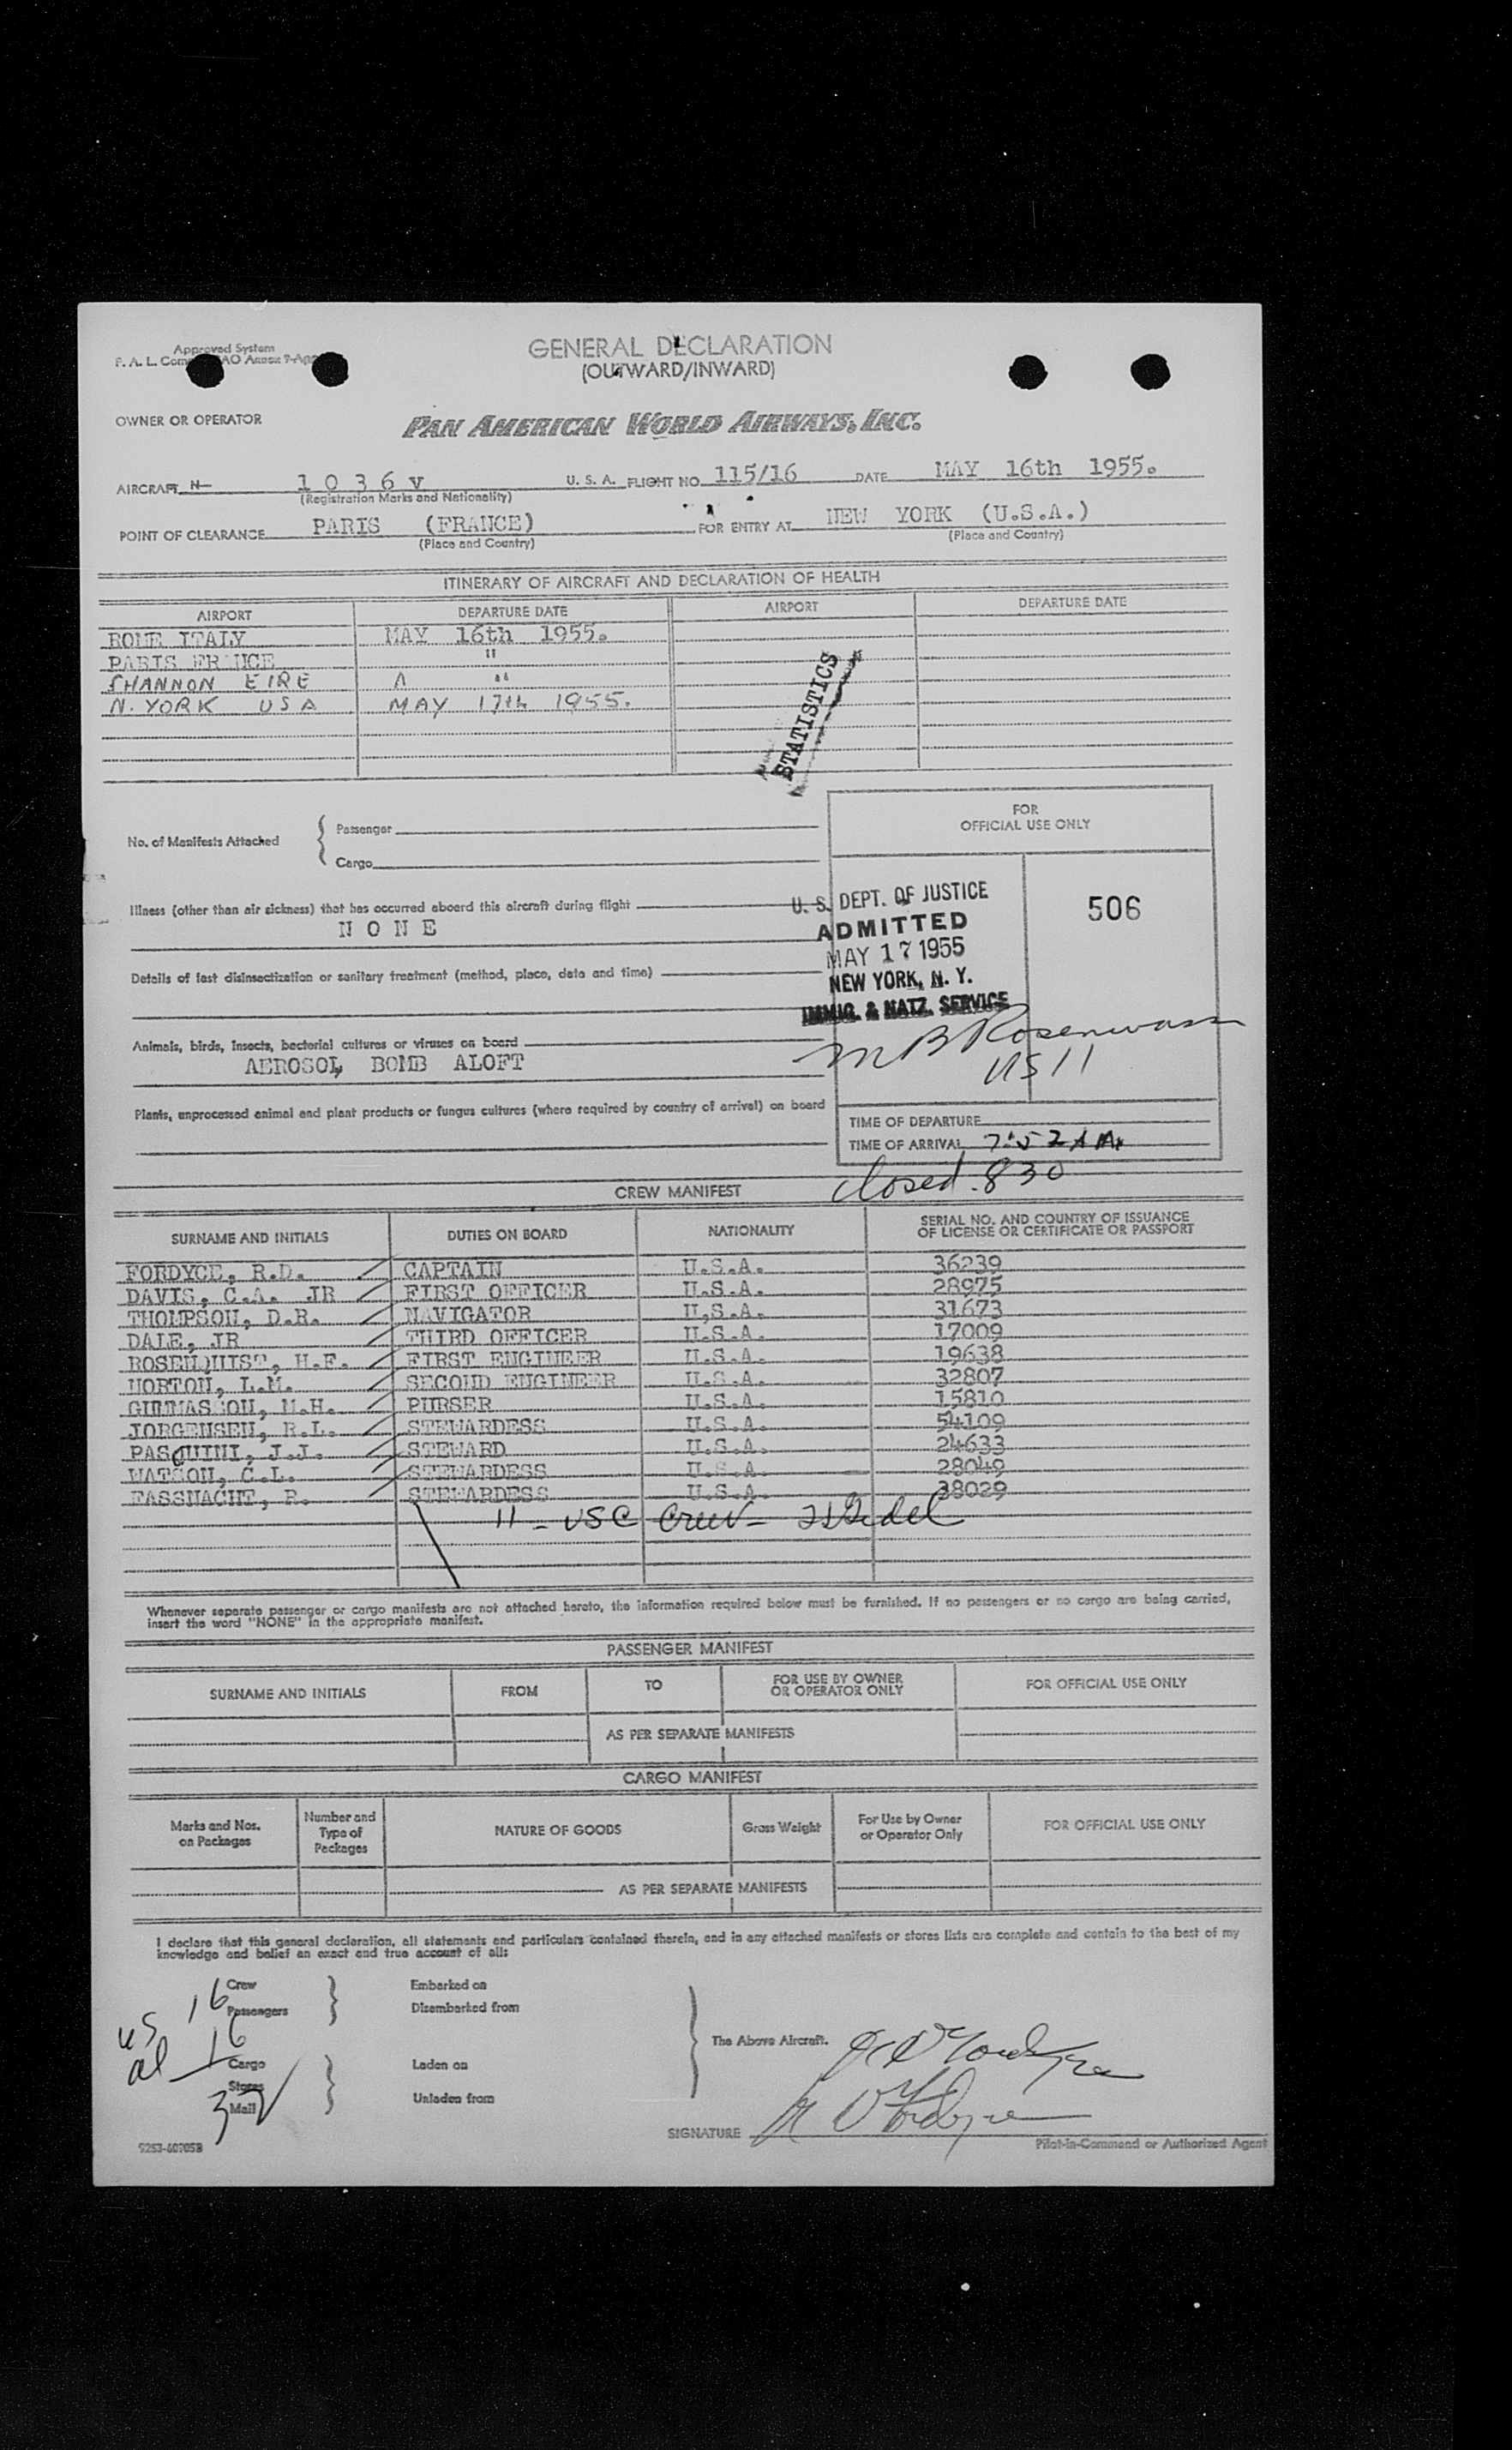 Approved System
GENERAL DECLARATION
(OUTWARD/INWARD)
OWNER OR OPERATOR PAN AMERICAN WORLD AIRWAYS, INC.
AIRCRAFT N 1 0 3 6 v U. S. A. FLIGHT NO. 115/16 DATE MAY 16th 1955.
(Registration Marks and Nationality)
POINT OF CLEARANCE PARIS (FRANCE) FOR ENTRY AT NEW YORK (U.S.A.)
(Place and Country) (Place and Country)
ITINERARY OF AIRCRAFT AND DECLARATION OF HEALTH
AIRPORT DEPARTURE DATE AIRPORT DEPARTURE DATE
ROME ITALY MAY 16th 1955.
PARIS FRANCE "
SHANNON EIRE "
N. YORK USA MAY 17th 1955.
STATISTICS
FOR
OFFICIAL USE ONLY
No. of Manifests Attached { Passenger
Cargo
506
Illness (other than air sickness) that has occurred aboard this aircraft during flight
N O N E
U. S. DEPT. OF JUSTICE
ADMITTED
MAY 17 1955
NEW YORK, N. Y.
IMMIG. & NATZ. SERVICE
Details of last disinsectization or sanitary treatment (method, place, date and time)
Animals, birds, insects, bacterial cultures or viruses on board
AEROSOL BOMB ALOFT
Plants, unprocessed animal and plant products or fungus cultures (where required by country of arrival) on board
TIME OF DEPARTURE
TIME OF ARRIVAL 7:52 AM
closed. 830
CREW MANIFEST
SURNAME AND INITIALS DUTIES ON BOARD NATIONALITY SERIAL NO. AND COUNTRY OF ISSUANCE OF LICENSE OR CERTIFICATE OR PASSPORT
FORDYCE, R.D. CAPTAIN U.S.A. 36239
DAVIS, C.A. JR FIRST OFFICER U.S.A. 28975
THOMPSON, D.R. NAVIGATOR U,S.A. 31673
DALE, JR THIRD OFFICER U.S.A. 17009
ROSENQUIST, H.F. FIRST ENGINEER U.S.A. 19638
NORTON, L.M. SECOND ENGINEER U.S.A. 32807
M.H. PURSER U.S.A. 15810
JORGENSEN, R.L. STEWARDESS U.S.A. 54109
PASQUINI, J.J. STEWARD U.S.A. 24633
WATSON, C.L. STEWARDESS U.S.A. 28049
FASSNACHT, P. STEWARDESS U.S.A. 38029
11 - USC Crew -
Whenever separate passenger or cargo manifests are not attached hereto, the information required below must be furnished. If no passengers or no cargo are being carried,
insert the word "NONE" in the appropriate manifest.
PASSENGER MANIFEST
SURNAME AND INITIALS FROM TO FOR USE BY OWNER OR OPERATOR ONLY FOR OFFICIAL USE ONLY
AS PER SEPARATE MANIFESTS
CARGO MANIFEST
Marks and Nos. on Packages Number and Type of Packages NATURE OF GOODS Gross Weight For Use by Owner or Operator Only FOR OFFICIAL USE ONLY
AS PER SEPARATE MANIFESTS
I declare that this general declaration, all statements and particulars contained therein, and in any attached manifests or stores lists are complete and contain to the best of my
knowledge and belief an exact and true account of all:
Crew Embarked on
us 16 Passengers Disembarked from
The Above Aircraft.
al 16 Cargo Laden on
Stores
32 Mail Unladen from
SIGNATURE
Pilot-in-Command or Authorized Agent